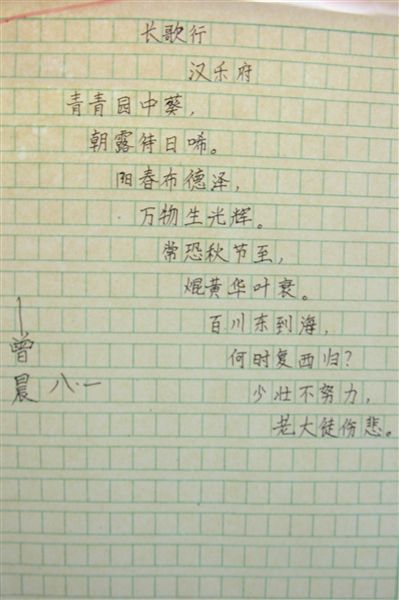 长歌行
汉乐府
青青园中葵，
朝露待日唏。
阳春布德泽，
万物生光辉。
常恐秋节至，
焜黄华叶衰。
百川东到海，
何时复西归？
少壮不努力，
老大徒伤悲。
—曾晨
八·一